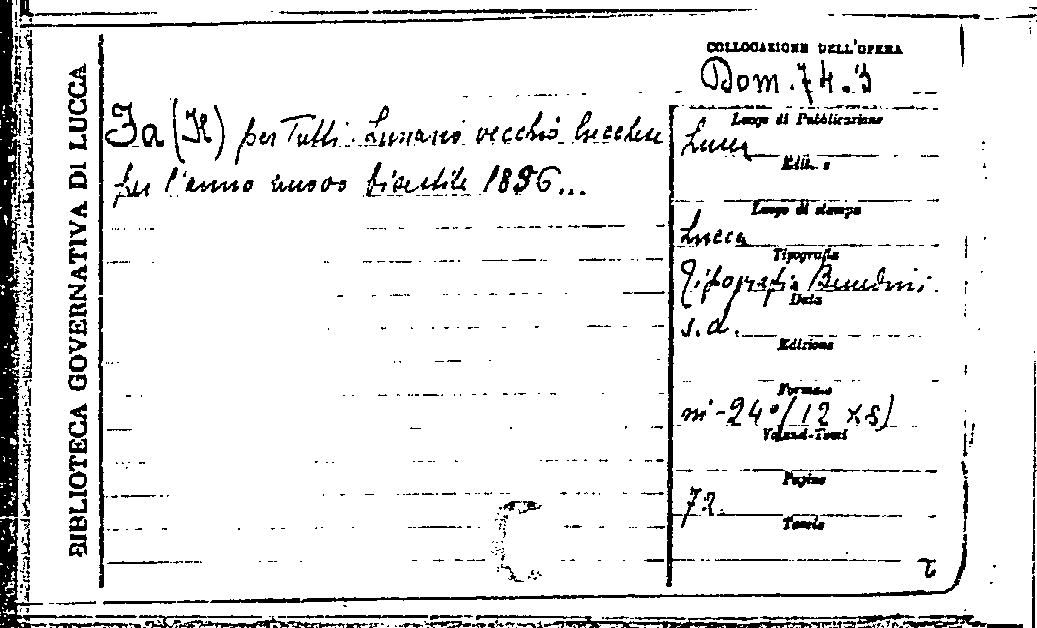 BIBLIOTECA GOVERNATIVA DI LUCCA
COLLOCAZIONE DELL'OPERA
Dom. 74.3
Fa (Il) per Tutti. Lunario vecchio lucchese
per l'anno nuovo bisestile 1896...
Luogo di Pubblicazione
Lucca
Luogo di stampa
Lucca
Tipografia
Tipografia Benedini
Data
s.a.
Edizione
Formato
in-24° (12 x 8)
Volumi-Tomi
Pagine
72
Tavole